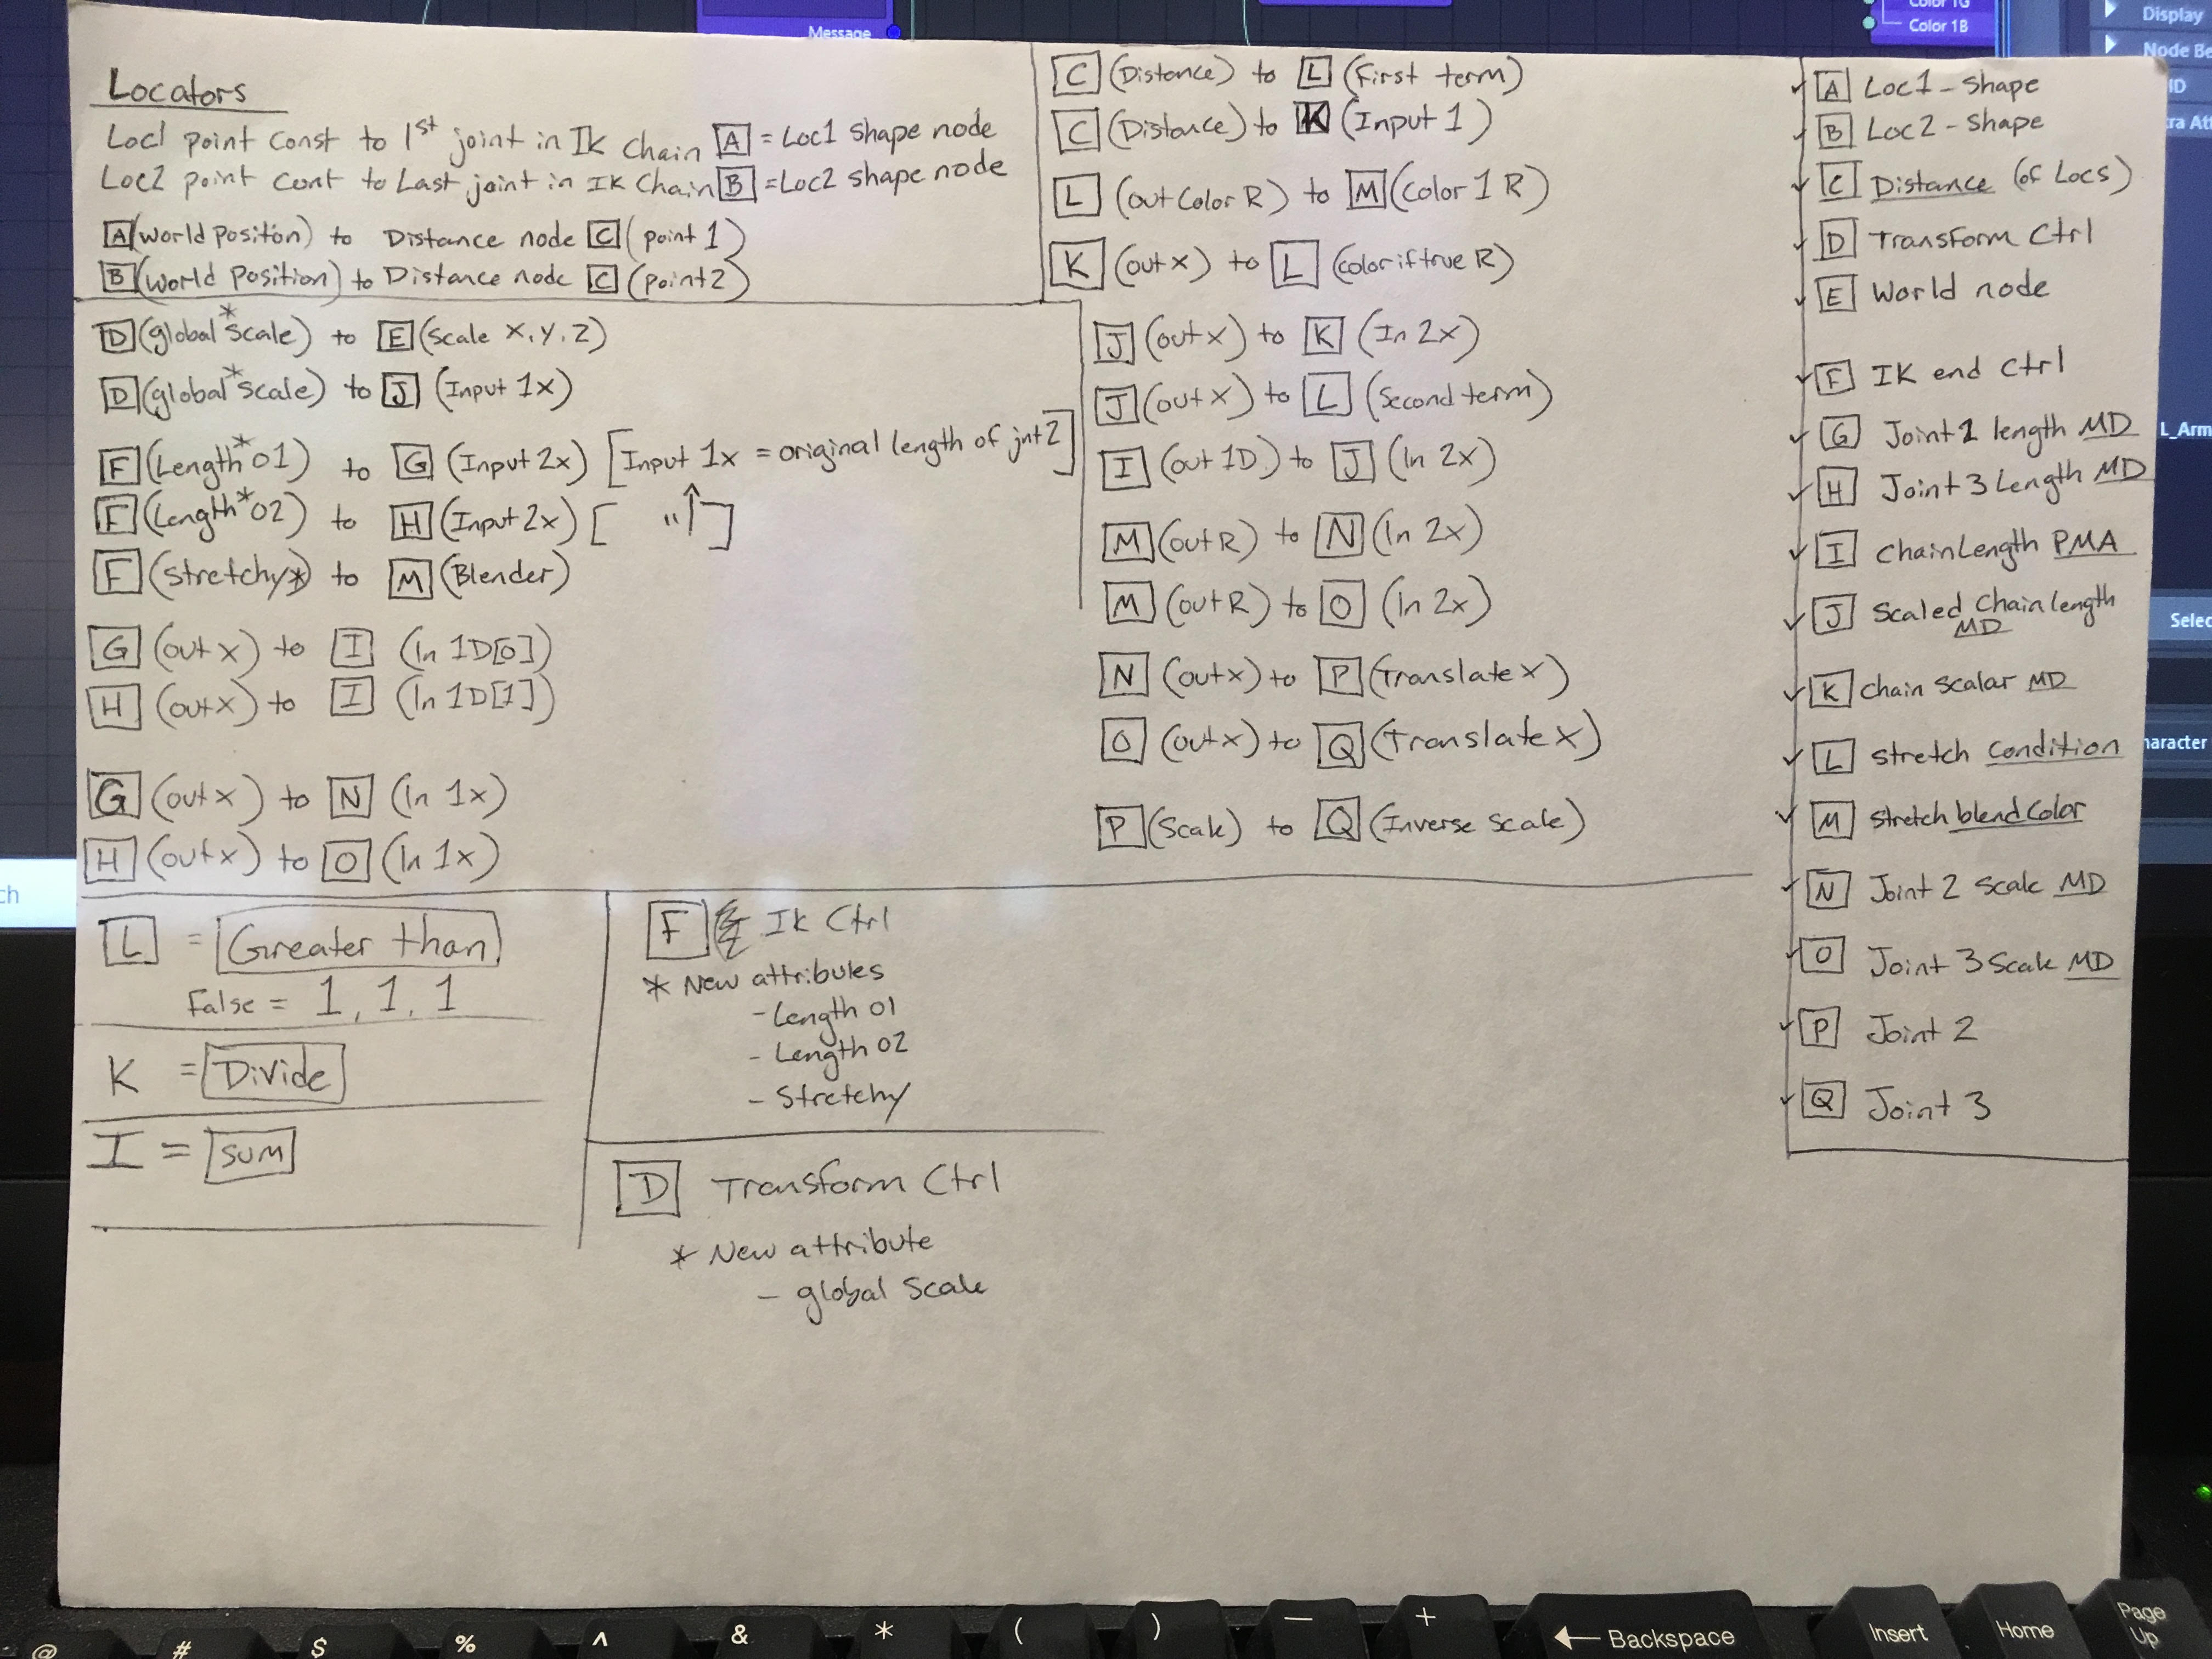 Message
Color 1G
Color 1B
Display
Node Be
ID
tra Att
L_Arm
Selec
haracter
ch
Locators
Loc1 point Const to 1st joint in IK Chain A = Loc1 shape node
Loc2 point Cont to Last joint in IK Chain B = Loc2 shape node
A (World Position) to Distance node C (point 1)
B (World Position) to Distance node C (point 2)
D (global* scale) to E (Scale X, Y, Z)
D (global* scale) to J (Input 1x)
F (Length* 01) to G (Input 2x) [Input 1x = original length of jnt 2]
F (Length* 02) to H (Input 2x) [ " ↑ ]
F (Stretchy*) to M (Blender)
G (out x) to I (In 1D[0])
H (out x) to I (In 1D[1])
G (out x) to N (In 1x)
H (out x) to O (In 1x)
C (Distance) to L (First term)
C (Distance) to K (Input 1)
L (out Color R) to M (Color 1 R)
K (out x) to L (color if true R)
J (out x) to K (In 2x)
J (out x) to L (Second term)
I (out 1D) to J (In 2x)
M (out R) to N (In 2x)
M (out R) to O (In 2x)
N (out x) to P (Translate X)
O (out x) to Q (Translate X)
P (Scale) to Q (Inverse Scale)
✓ A Loc1 - Shape
✓ B Loc2 - Shape
✓ C Distance (of Locs)
✓ D Transform Ctrl
✓ E World node
✓ F IK end Ctrl
✓ G Joint 2 length MD
✓ H Joint 3 Length MD
✓ I Chain Length PMA
✓ J Scaled Chain length
MD
✓ K Chain Scalar MD
✓ L Stretch Condition
✓ M Stretch blend Color
✓ N Joint 2 Scale MD
✓ O Joint 3 Scale MD
✓ P Joint 2
✓ Q Joint 3
L = Greater than
False = 1, 1, 1
K = Divide
I = SUM
F IK Ctrl
* New attributes
- Length 01
- Length 02
- Stretchy
D Transform Ctrl
* New attribute
- global Scale
@ # $ % ^ & * ( ) — + ← Backspace Insert Home Page
Up